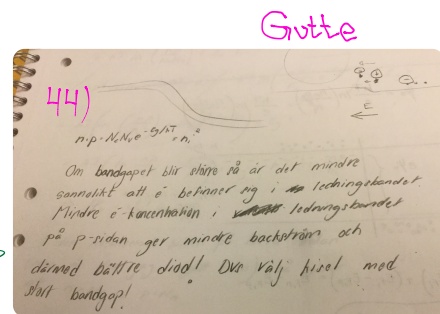 Gutte
44)
E
n·p = NcNv e^-Eg/kT = ni²
Om bandgapet blir större så är det mindre
sannolikt att e⁻ befinner sig i ledningsbandet.
Mindre e⁻-koncentration i ledningsbandet
på p-sidan ger mindre backström och
därmed bättre diod! Dvs välj kisel med
stort bandgap!